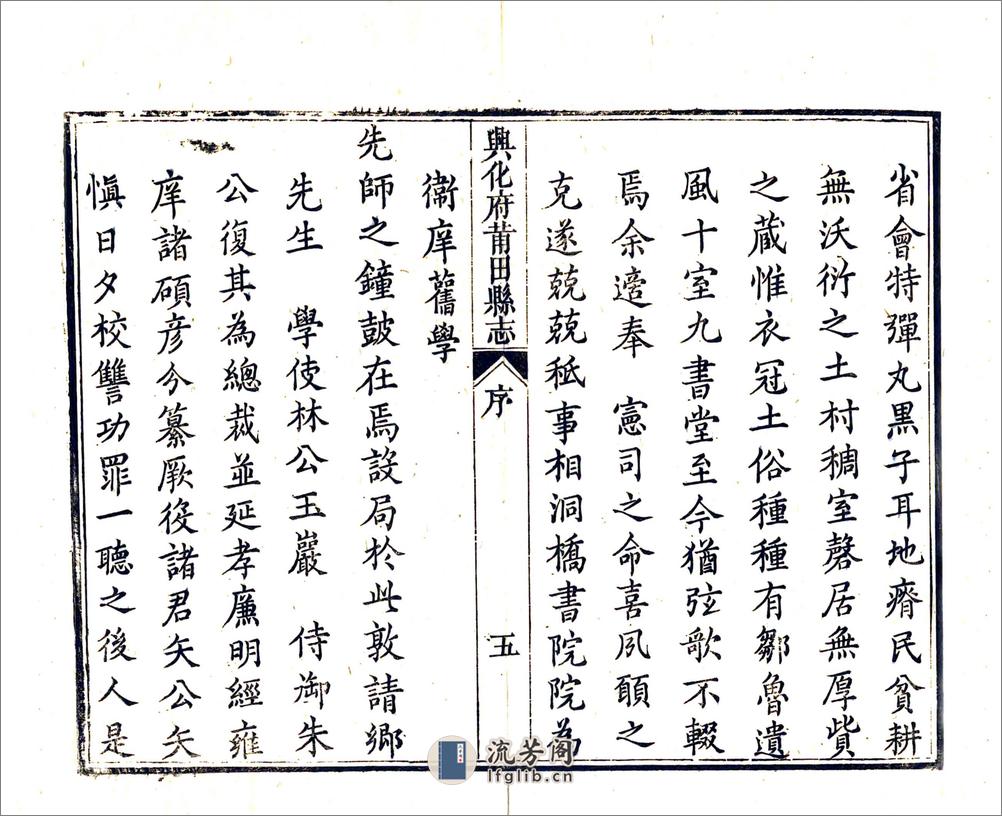 省會特彈丸黑子耳地瘠民貧耕
無沃衍之土村稠室罄居無厚貲
之藏惟衣冠土俗種種有鄒魯遺
風十室九書堂至今猶弦歌不輟
焉余遵奉 憲司之命喜夙願之
克遂兢兢秪事相洞橋書院院為
興化府莆田縣志
序
五
衞庠舊學
先師之鐘鼓在焉設局於此敦請鄉
先生 學使林公玉巖 侍御朱
公復其為總裁並延孝廉明經雍
庠諸碩彥今纂厥役諸君矢公矢
慎日夕校讐功罪一聽之後人是
流芳阁
lfglib.cn